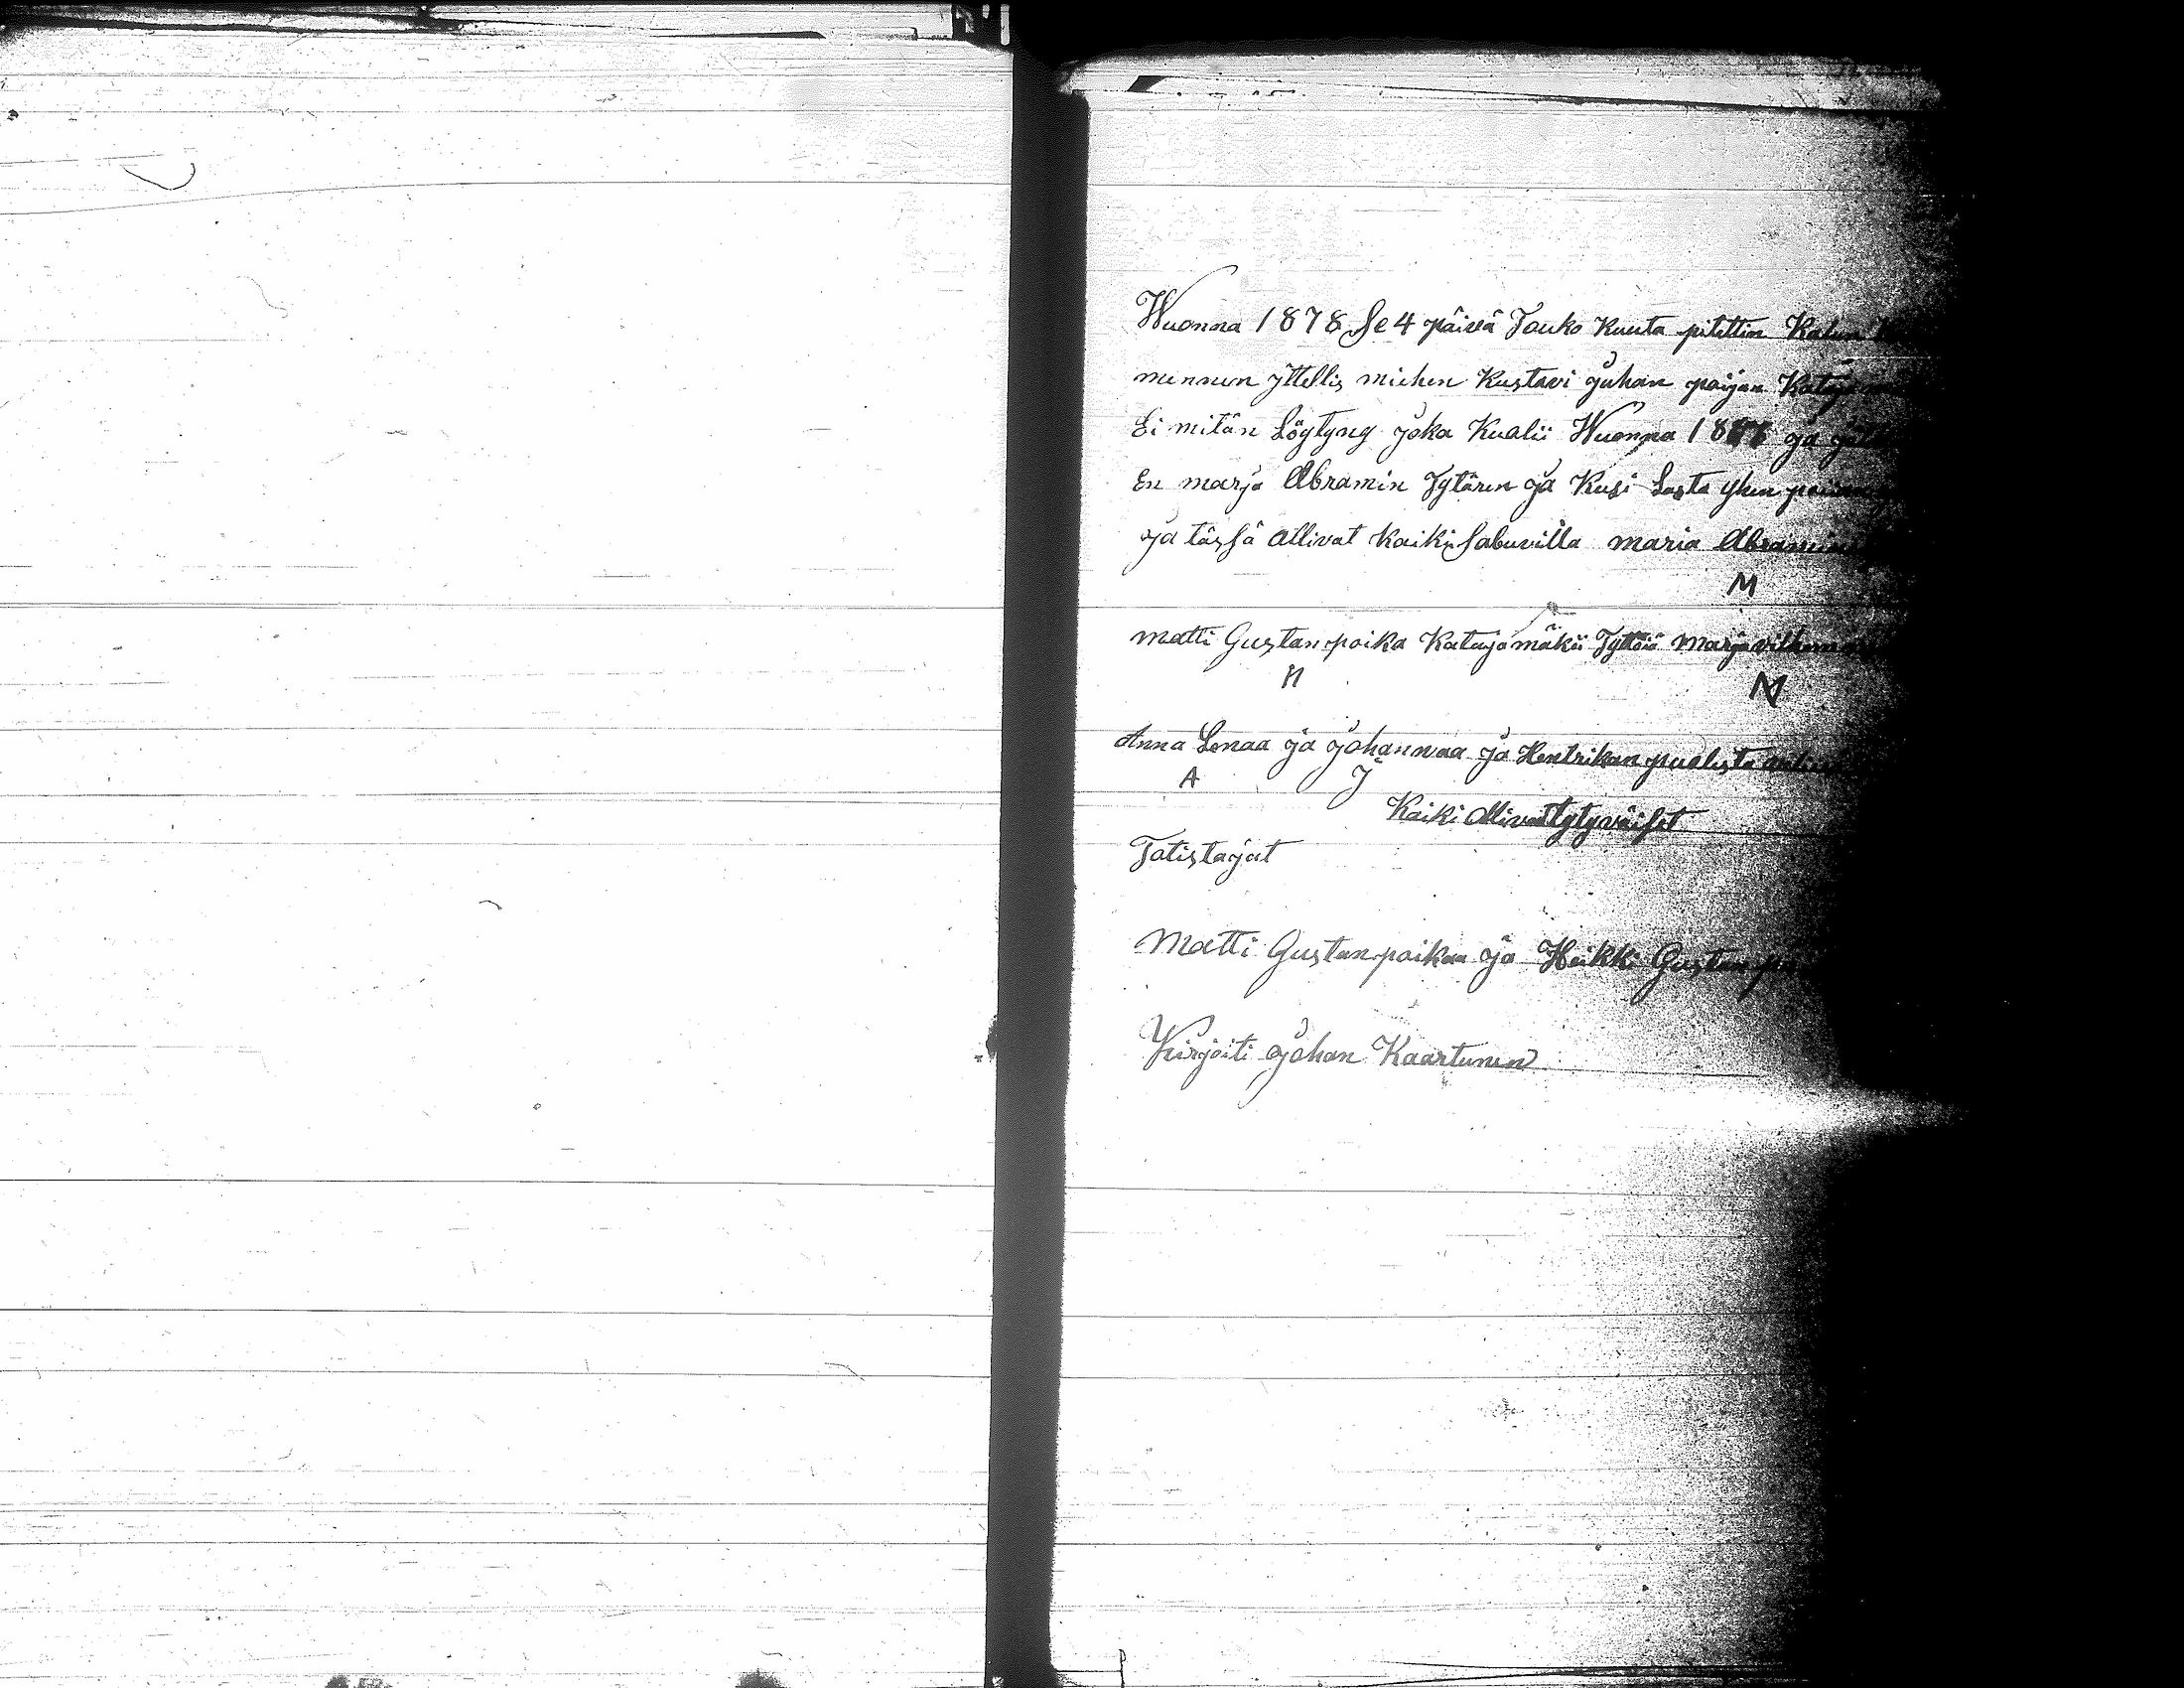 Wuonna 1878 Se 4 päivä Touko Kuuta pitettin Kalun
mennen yttellis miehen Kustavi Juhan poijan Kataja
Ei mitän Löytyny joka Kualii Wuonna 1878 ja
En marja Abramin Tytären ja Kusi Lasta yhen
ja tässä allivat Kaiki Sabuvilla maria Abramin
M
Matti Gustanpoika Katajamäkii Tyttöiä Marja vilhem
M
Anna Lenaa ja Johannaa ja Hentrikan puolesta
A J
Kaiki Allivat tytyväiset
Totistajat
Matti Gustanpoikaa ja Heikki Gustan
Kirjoiti Johan Kaartunen